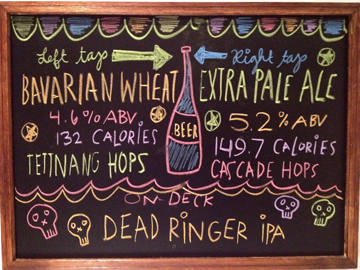 Left tap
Right tap
BAVARIAN WHEAT
EXTRA PALE ALE
4.6% ABV
5.2% ABV
132 CALORIES
149.7 CALORIES
TETTNANG HOPS
CASCADE HOPS
BEER
ON DECK
DEAD RINGER IPA